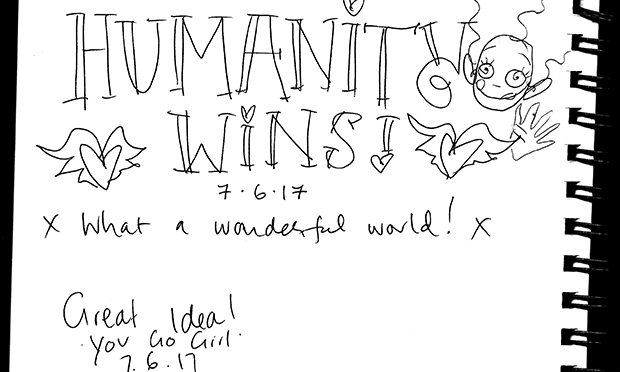 HUMANITY
WiNS!
7.6.17
x What a wonderful world! x
Great Idea!
You Go Girl.
7.6.17